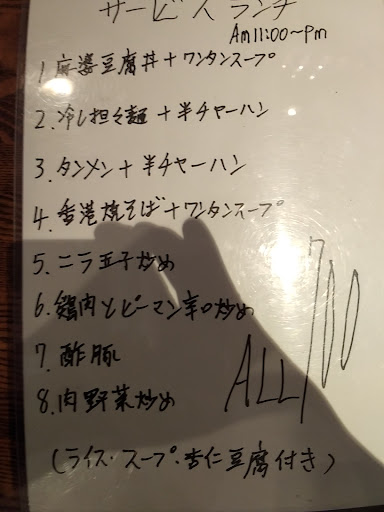 サービスランチ
Am11:00〜Pm
1 麻婆豆腐丼+ワンタンスープ
2.冷し担々麺+半チャーハン
3.タンメン+半チャーハン
4.香港焼そば+ワンタンスープ
5.ニラ玉子炒め
6.鶏肉とピーマン辛口炒め
7.酢豚
8.肉野菜炒め
ALL 700
(ライス・スープ・杏仁豆腐付き)